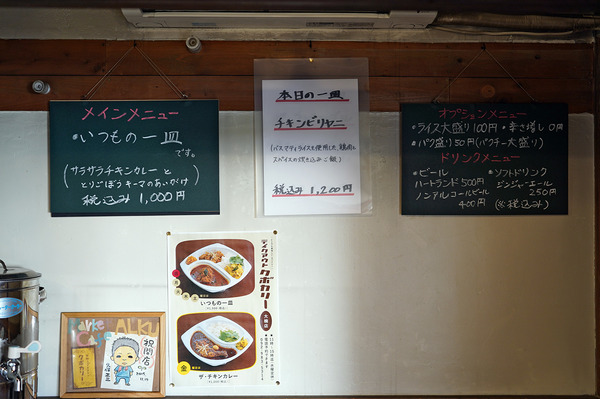 メインメニュー
・いつもの一皿
です。
(サラサラチキンカレーと
とりごぼうキーマのあいがけ)
税込み 1,000円
本日の一皿
チキンビリヤニ
(バスマティライスを使用した、鶏肉と
スパイスの炊き込みご飯)
税込み 1,200円
オプションメニュー
・ライス大盛り100円・辛さ増し 0円
・パク盛り50円(パクチー大盛り)
ドリンクメニュー
・ビール
ハートランド 500円
ノンアルコールビール
400円
・ソフトドリンク
ジンジャーエール
250円
(※税込み)
テイクアウト
クボカリー
大橋店
いつもの一皿
ザ・チキンカレー
金
祝開店
クボカリー